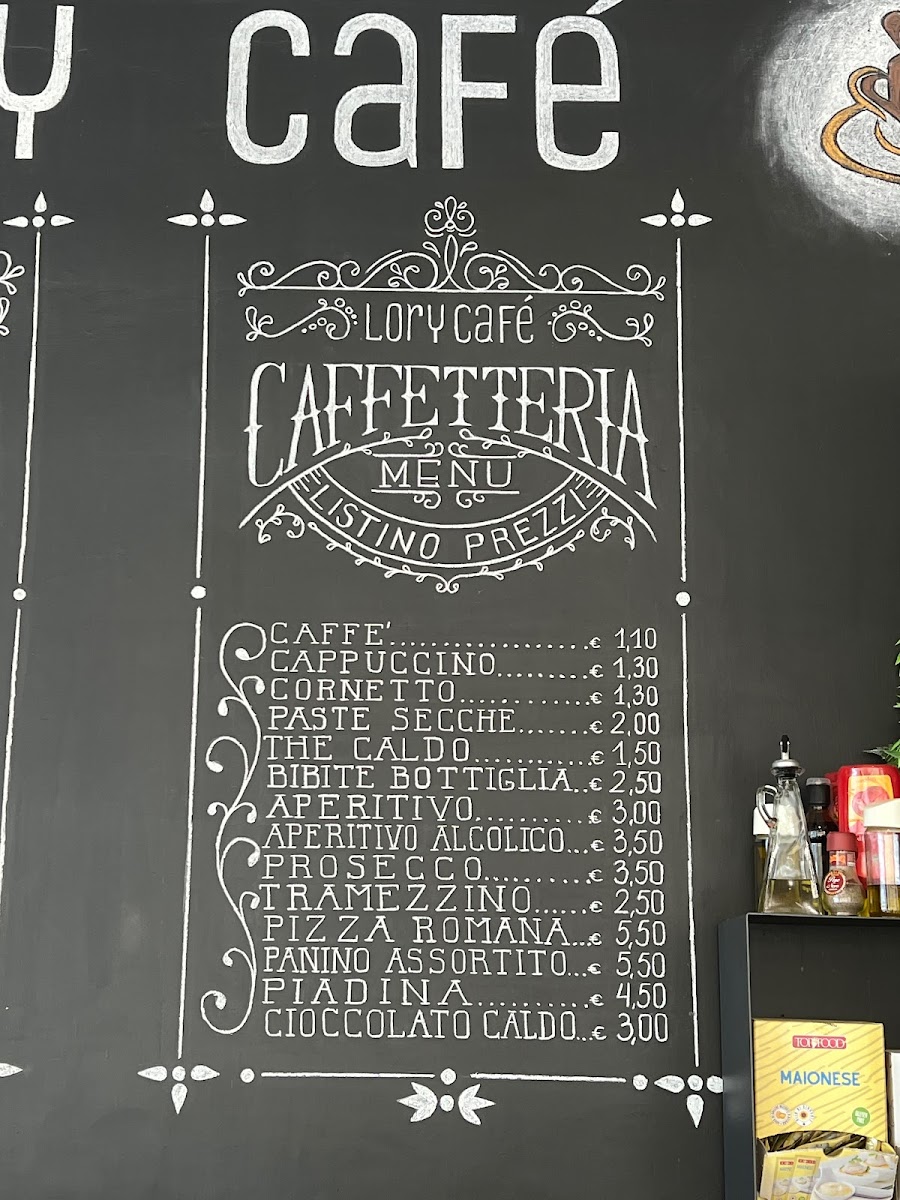 y café
Lory café
CAFFETTERIA
MENU
LISTINO PREZZI
CAFFE'..................€ 1,10
CAPPUCCINO.........€ 1,30
CORNETTO............€ 1,30
PASTE SECCHE.......€ 2,00
THE CALDO...........€ 1,50
BIBITE BOTTIGLIA..€ 2,50
APERITIVO..........€ 3,00
APERITIVO ALCOLICO...€ 3,50
PROSECCO..........€ 3,50
TRAMEZZINO......€ 2,50
PIZZA ROMANA...€ 5,50
PANINO ASSORTITO...€ 5,50
PIADINA..........€ 4,50
CIOCCOLATO CALDO..€ 3,00
TOP FOOD
MAIONESE